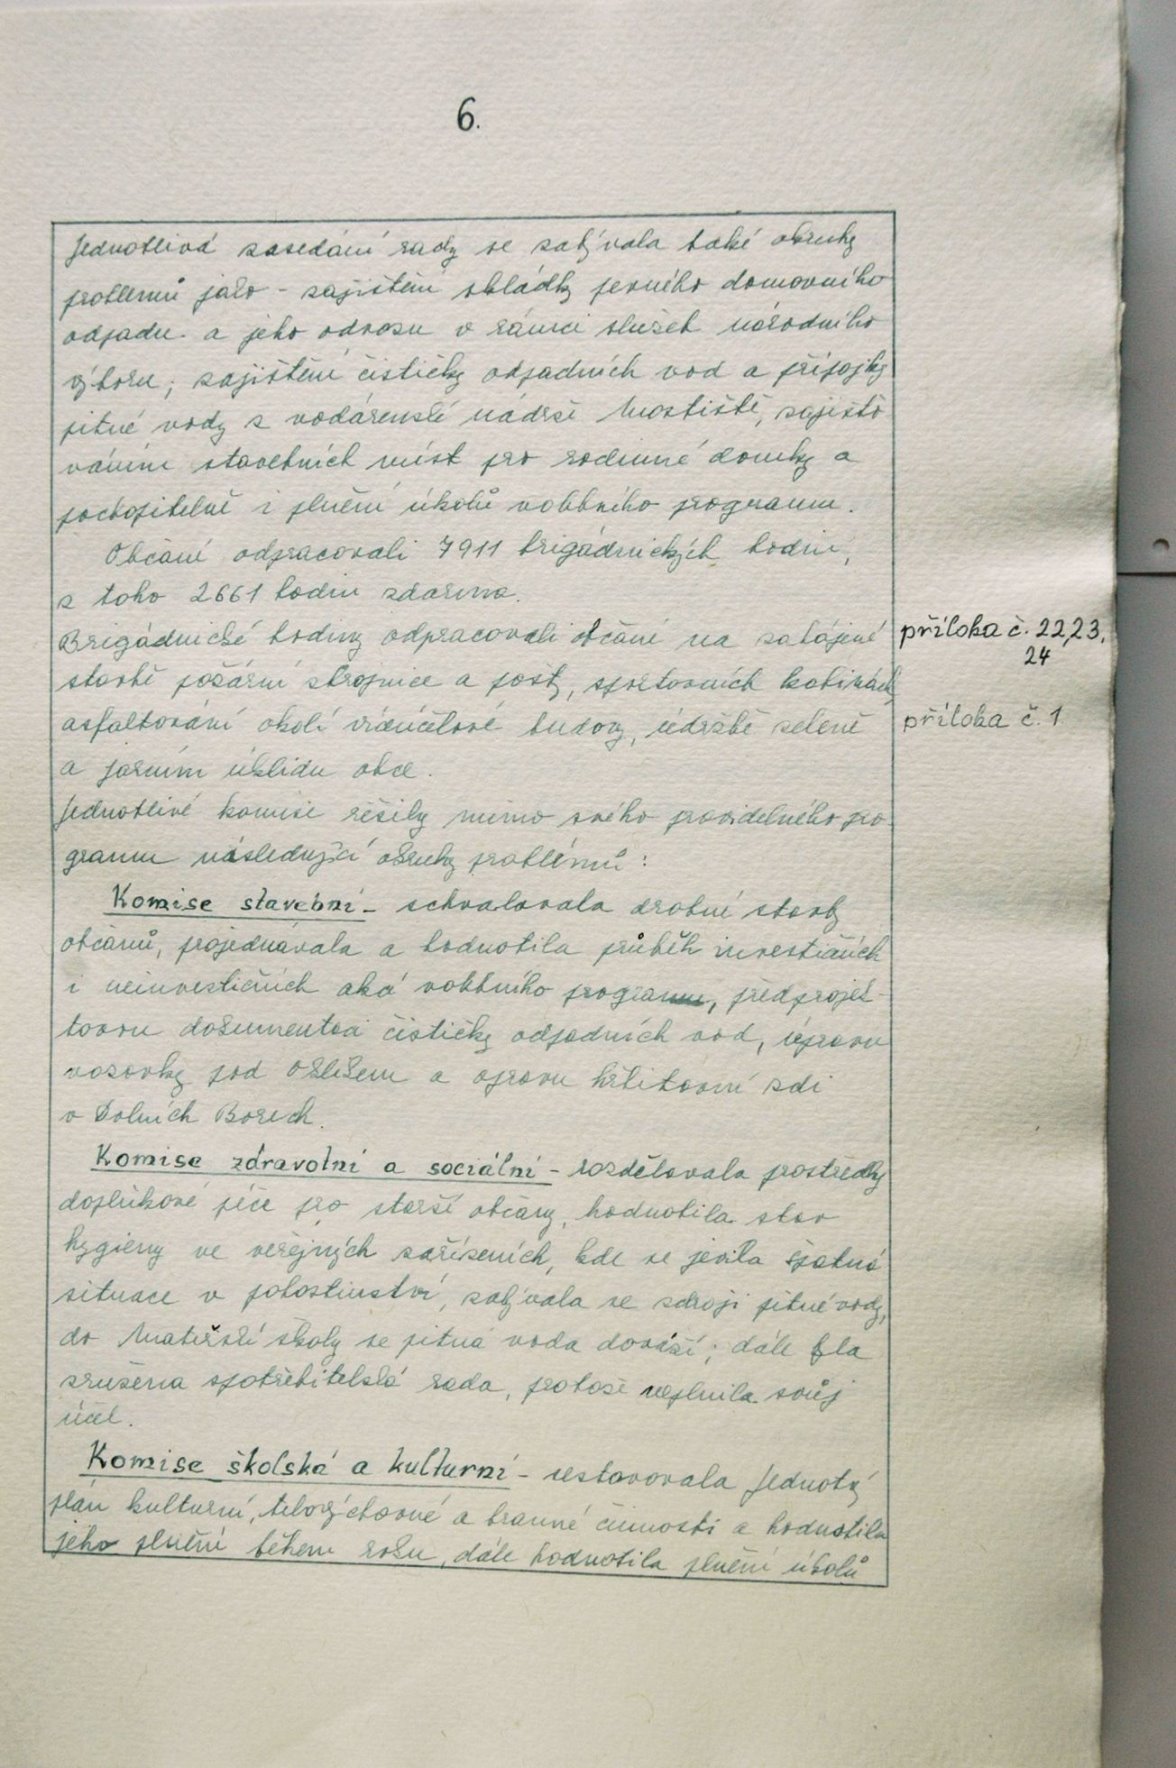 6.
Jednotlivá zasedání rady se zabývala také okruhy
problémů jako - zajištění skládky pevného domovního
odpadu a jeho odvozu v rámci služeb národního
výboru, zajištění čističky odpadních vod a přípojky
pitné vody z vodárenské nádrže Mostiště, zajišťo
váním stavebních míst pro rodinné domky a
pochopitelně i plnění úkolů volebního programu.
Občané odpracovali 7911 brigádnických hodin,
z toho 2661 hodin zdarma.
Brigádnické hodiny odpracovali občané na zahájené
příloha č. 22,23,
24
stavbě požární zbrojnice a pošty, sportovních kabinách
asfaltování okolí víceúčelové budovy, údržbě zeleně
příloha č. 1
a jarním úklidu obce.
Jednotlivé komise řešily mimo svého pravidelného pro-
gramu následující okruhy problémů:
Komise stavební - schvalovala drobné stavby
občanů, projednávala a hodnotila průběh investičních
i neinvestičních akcí volebního programu, předprojek-
tovou dokumentaci čističky odpadních vod, úpravu
vozovky pod Oklikem a opravu hřbitovní zdi
v Dolních Borech.
Komise zdravotní a sociální - rozdělovala prostředky
doplňkové péče pro starší občany, hodnotila stav
hygieny ve veřejných zařízeních, kde se jevila špatná
situace v pohostinství, zabývala se zdroji pitné vody,
do Mateřské školy se pitná voda dováží; dále byla
zrušena spotřebitelská rada, protože neplnila svůj
účel.
Komise školská a kulturní - sestavovala Jednotný
plán kulturní, tělovýchovné a branné činnosti a hodnotila
jeho plnění během roku, dále hodnotila plnění úkolů